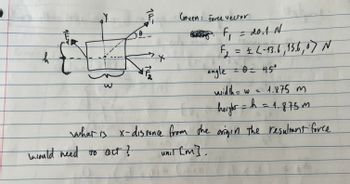 Given: Force vector
y
F₁
θ
F₁ = 20.1 N
F₂
h
x
F₂ = ± <-13.6, 13.6, 0> N
F₂
angle = θ = 45°
w
width = w = 1.875 m
height = h = 1.875 m
what is x-distance from the origin the resultant force
would need to act? unit [m].